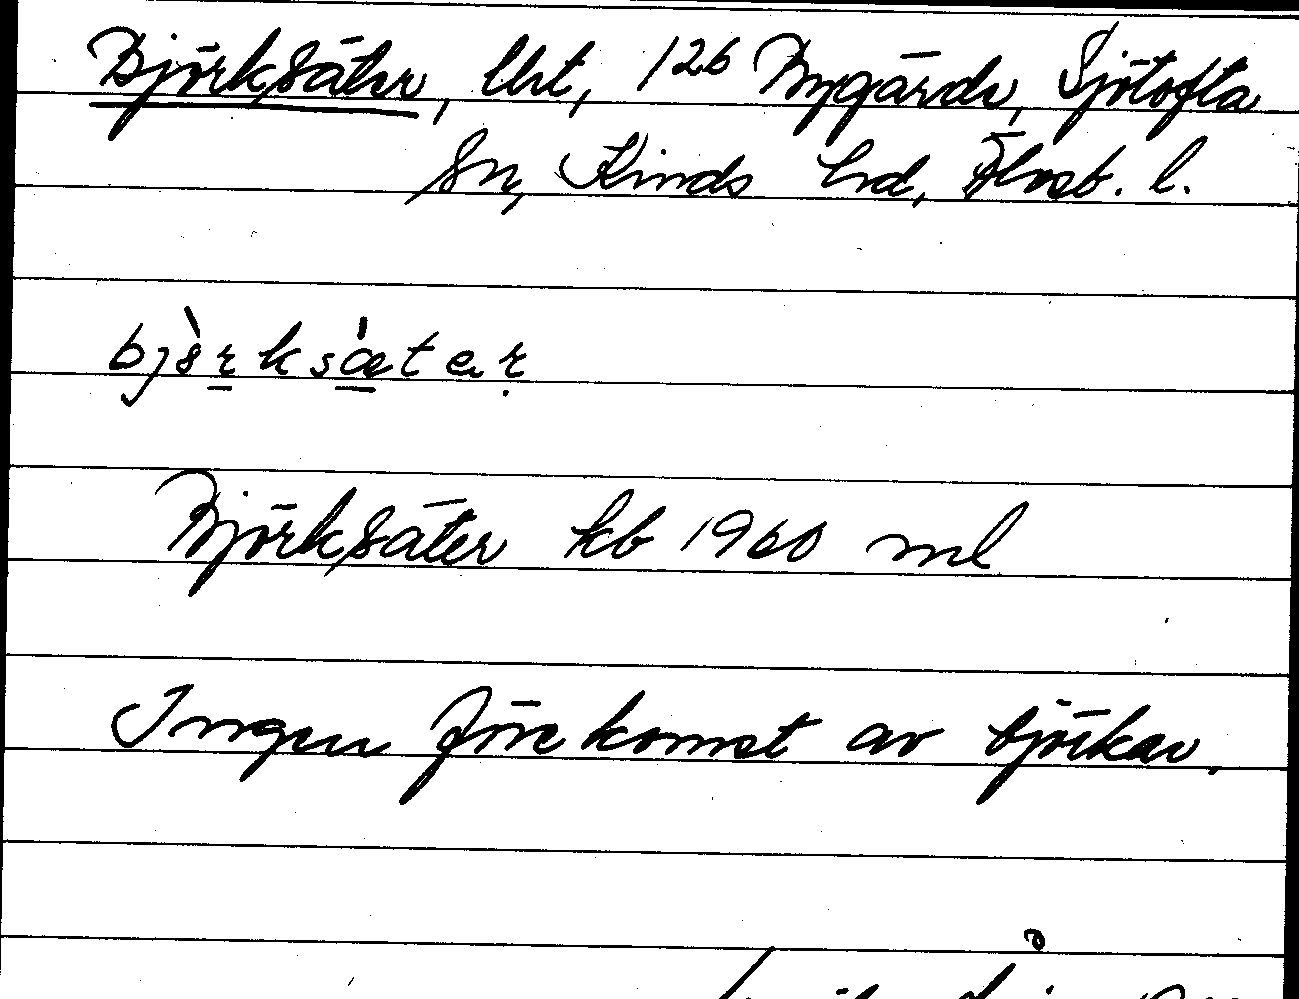 Björksäter, lht, 126 Bygärde, Sjötofta
sn, Kinds hd, Älvsb. l.
bjòrksǽter
Björksäter kb 1960 ml
Ingen förekomst av björkar.